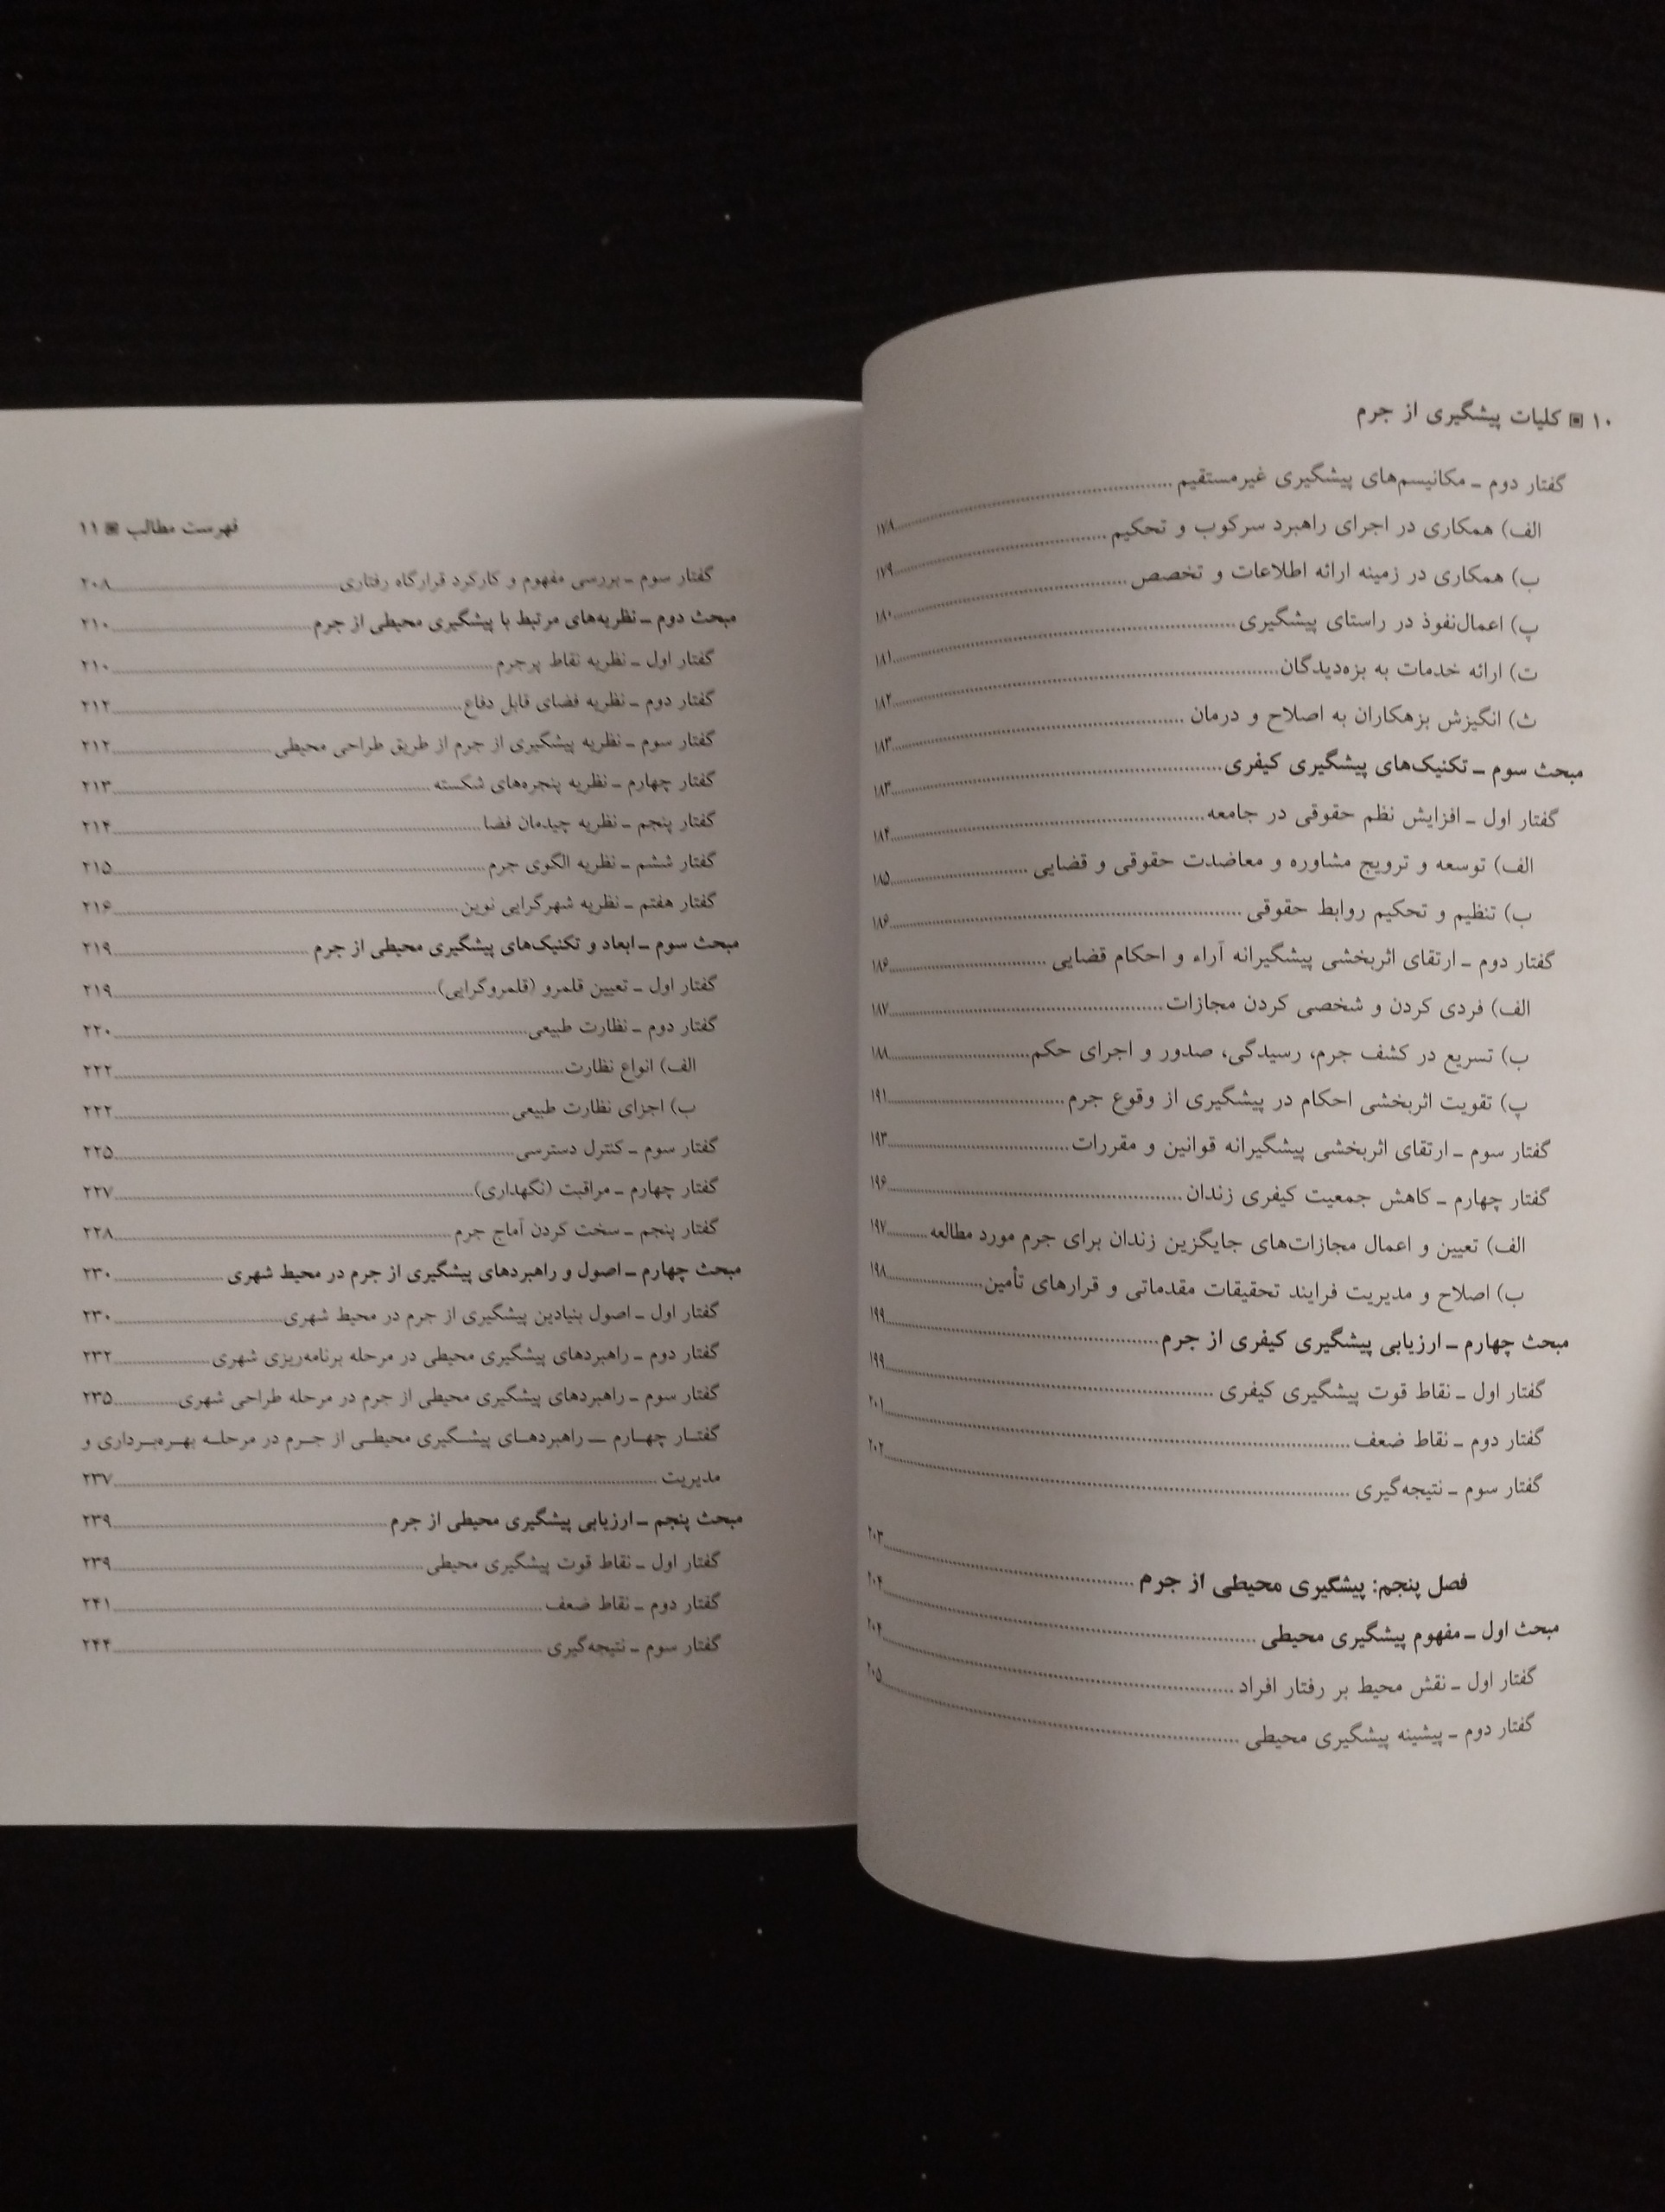 ۱۰ ▣ کلیات پیشگیری از جرم
گفتار دوم ـ مکانیسم‌های پیشگیری غیرمستقیم ........ ۱۷۸
الف) همکاری در اجرای راهبرد سرکوب و تحکیم ........ ۱۷۹
ب) همکاری در زمینه ارائه اطلاعات و تخصص ........ ۱۸۰
پ) اعمال‌نفوذ در راستای پیشگیری ........ ۱۸۱
ت) ارائه خدمات به بزه‌دیدگان ........ ۱۸۲
ث) انگیزش بزهکاران به اصلاح و درمان ........ ۱۸۳
مبحث سوم ـ تکنیک‌های پیشگیری کیفری ........ ۱۸۳
گفتار اول ـ افزایش نظم حقوقی در جامعه ........ ۱۸۴
الف) توسعه و ترویج مشاوره و معاضدت حقوقی و قضایی ........ ۱۸۵
ب) تنظیم و تحکیم روابط حقوقی ........ ۱۸۶
گفتار دوم ـ ارتقای اثربخشی پیشگیرانه آراء و احکام قضایی ........ ۱۸۶
الف) فردی کردن و شخصی کردن مجازات ........ ۱۸۷
ب) تسریع در کشف جرم، رسیدگی، صدور و اجرای حکم ........ ۱۸۸
پ) تقویت اثربخشی احکام در پیشگیری از وقوع جرم ........ ۱۹۱
گفتار سوم ـ ارتقای اثربخشی پیشگیرانه قوانین و مقررات ........ ۱۹۳
گفتار چهارم ـ کاهش جمعیت کیفری زندان ........ ۱۹۶
الف) تعیین و اعمال مجازات‌های جایگزین زندان برای جرم مورد مطالعه ........ ۱۹۷
ب) اصلاح و مدیریت فرایند تحقیقات مقدماتی و قرارهای تأمین ........ ۱۹۸
مبحث چهارم ـ ارزیابی پیشگیری کیفری از جرم ........ ۱۹۹
گفتار اول ـ نقاط قوت پیشگیری کیفری ........ ۱۹۹
گفتار دوم ـ نقاط ضعف ........ ۲۰۱
گفتار سوم ـ نتیجه‌گیری ........ ۲۰۲
فصل پنجم: پیشگیری محیطی از جرم ........ ۲۰۳
مبحث اول ـ مفهوم پیشگیری محیطی ........ ۲۰۴
گفتار اول ـ نقش محیط بر رفتار افراد ........ ۲۰۴
گفتار دوم ـ پیشینه پیشگیری محیطی ........ ۲۰۵
فهرست مطالب ▣ ۱۱
گفتار سوم ـ بررسی مفهوم و کارکرد قرارگاه رفتاری ........ ۲۰۸
مبحث دوم ـ نظریه‌های مرتبط با پیشگیری محیطی از جرم ........ ۲۱۰
گفتار اول ـ نظریه نقاط پرجرم ........ ۲۱۰
گفتار دوم ـ نظریه فضای قابل دفاع ........ ۲۱۲
گفتار سوم ـ نظریه پیشگیری از جرم از طریق طراحی محیطی ........ ۲۱۲
گفتار چهارم ـ نظریه پنجره‌های شکسته ........ ۲۱۳
گفتار پنجم ـ نظریه چیدمان فضا ........ ۲۱۴
گفتار ششم ـ نظریه الگوی جرم ........ ۲۱۵
گفتار هفتم ـ نظریه شهرگرایی نوین ........ ۲۱۶
مبحث سوم ـ ابعاد و تکنیک‌های پیشگیری محیطی از جرم ........ ۲۱۹
گفتار اول ـ تعیین قلمرو (قلمروگرایی) ........ ۲۱۹
گفتار دوم ـ نظارت طبیعی ........ ۲۲۰
الف) انواع نظارت ........ ۲۲۲
ب) اجزای نظارت طبیعی ........ ۲۲۲
گفتار سوم ـ کنترل دسترسی ........ ۲۲۵
گفتار چهارم ـ مراقبت (نگهداری) ........ ۲۲۷
گفتار پنجم ـ سخت کردن آماج جرم ........ ۲۲۸
مبحث چهارم ـ اصول و راهبردهای پیشگیری از جرم در محیط شهری ........ ۲۳۰
گفتار اول ـ اصول بنیادین پیشگیری از جرم در محیط شهری ........ ۲۳۰
گفتار دوم ـ راهبردهای پیشگیری محیطی در مرحله برنامه‌ریزی شهری ........ ۲۳۲
گفتار سوم ـ راهبردهای پیشگیری محیطی از جرم در مرحله طراحی شهری ........ ۲۳۵
گفتار چهارم ـ راهبردهای پیشگیری محیطی از جرم در مرحله بهره‌برداری و
مدیریت ........ ۲۳۷
مبحث پنجم ـ ارزیابی پیشگیری محیطی از جرم ........ ۲۳۹
گفتار اول ـ نقاط قوت پیشگیری محیطی ........ ۲۳۹
گفتار دوم ـ نقاط ضعف ........ ۲۴۱
گفتار سوم ـ نتیجه‌گیری ........ ۲۴۴